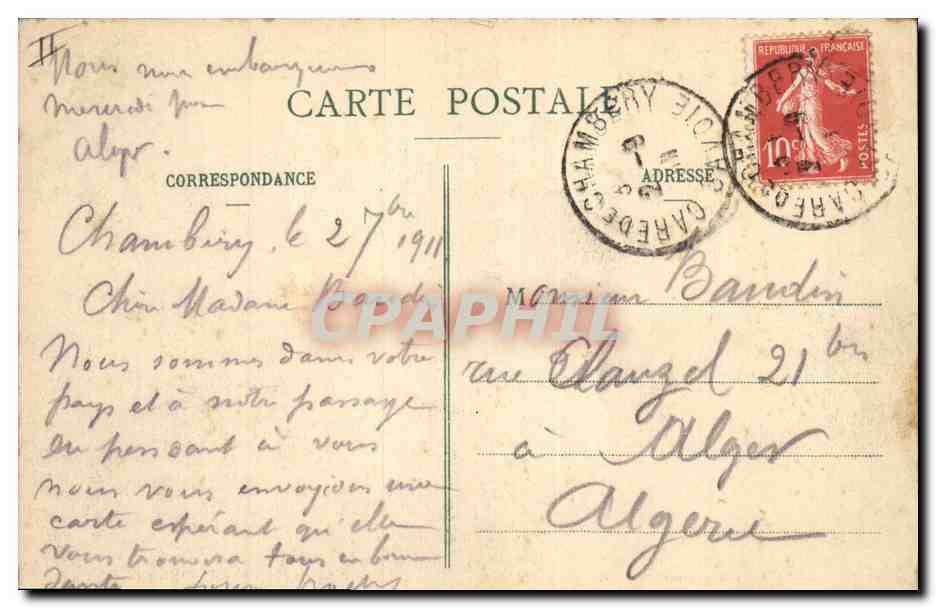 II
Nous nous embarquerons
mercredi pour
Alger.
CARTE POSTALE
CORRESPONDANCE
ADRESSE
REPUBLIQUE FRANÇAISE
10c
POSTES
CHAMBERY GARE DE SAVOIE
CHAMBERY GARE DE
Chambéry, le 2 7bre 1911
Chère Madame Baudin
Nous sommes dans votre
pays et à notre passage
en pensant à vous
nous vous envoyions une
carte espérant qu'elle
vous trouvera tous en bonne
santé
Monsieur Baudin
rue Clauzel 21 bis
à Alger
Algérie
CPAPHIL